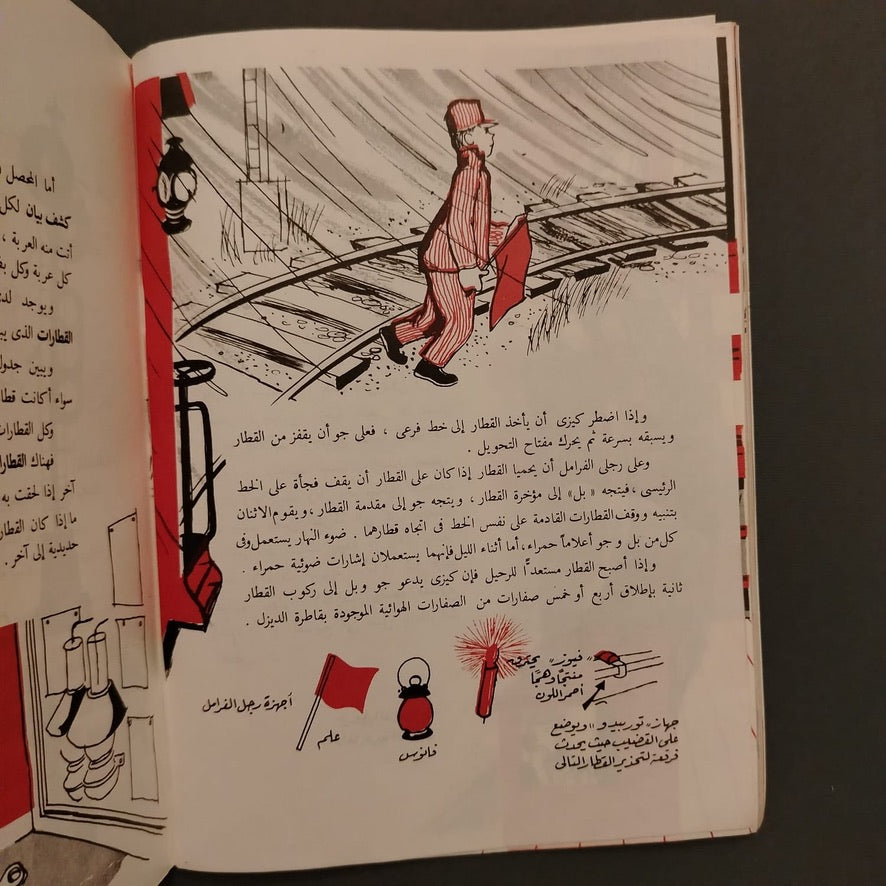 وإذا اضطر كيزى أن يأخذ القطار إلى خط فرعى ، فعلى جو أن يقفز من القطار
ويسبقه بسرعة ثم يحرك مفتاح التحويل .
وعلى رجلى الفرامل أن يحميا القطار إذا كان على القطار أن يقف فجأة على الخط
الرئيسى ، فيتجه « بل » إلى مؤخرة القطار ، ويتجه جو إلى مقدمة القطار ، ويقوم الاثنان
بتنبيه ووقف القطارات القادمة على نفس الخط فى اتجاه قطارهما . ضوء النهار يستعمل وفى
كل من بل و جو أعلاماً حمراء ، أما أثناء الليل فإنهما يستعملان إشارات ضوئية حمراء .
وإذا أصبح القطار مستعدًّا للرحيل فإن كيزى يدعو جو وبل إلى ركوب القطار
ثانية بإطلاق أربع أو خمس صفارات من الصفارات الهوائية الموجودة بقاطرة الديزل .
أجهزة رجل الفرامل
علم
فانوس
« فيوز » يحترق
منتجًا وهجًا
أحمر اللون
جهاز « توربيدو » ويوضع
على القضيب حيث يحدث
فرقعة لتحذير القطار التالى
أما المحصل
كشف بيان لكل
أتت منه العربة ،
كل عربة وكل
ويوجد
القطارات الذى
ويبين جدول
سواء أكانت
وكل القطارات
فهناك
آخر إذا لحقت به
ما إذا كان القطار
حديدية إلى آخر .